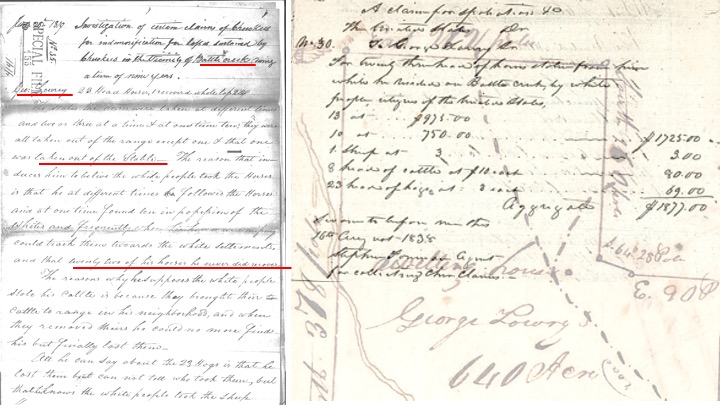 Investigation of certain claims of Cherokees
for indemnification for losses sustained by
Cherokees in the vicinity of Battle creek, during
a term of nine years.
SPECIAL FILE
No 25
Geo Lowrey 23 Head Horses, 1 recovered which left 22
taken at different times
and two or three at a time & at one time ten, they were
all taken out of the range except one & that one
was taken out of the Stable. The reason that in-
duces him to believe the white people took the Horses
is that he at different times followed the Horses
and at one time found ten in possession of the
Whites and frequently when
could track them towards the white settlements,
and that twenty two of his horses he never did recover
The reasons why he supposes the white people
stole his Cattle is because they brought their
cattle to range in his neighborhood, and when
they removed theirs he could no more find
his but finally lost them
All he can say about the 23 Hogs is that he
lost them but can not tell who took them, but
that he knows the white people took the Sheep
A claim for Spoliations
The United States Dr
No. 30. To George Lowrey Dr
For twenty three head of horses stolen from him
while he resided on Battle creek, by white
people citizens of the United States,
13 at $975.00
10 at 750.00 $1725.00
1 Sheep at 3 3.00
8 head of cattle at $10 each 80.00
23 head of hogs at 3 each 69.00
Aggregate $1877.00
Sworn to before me this
16th August 1838
Agent
for collecting Cher. Claims
House
S. 64
E. 90 P
George Lowry
640 Acres